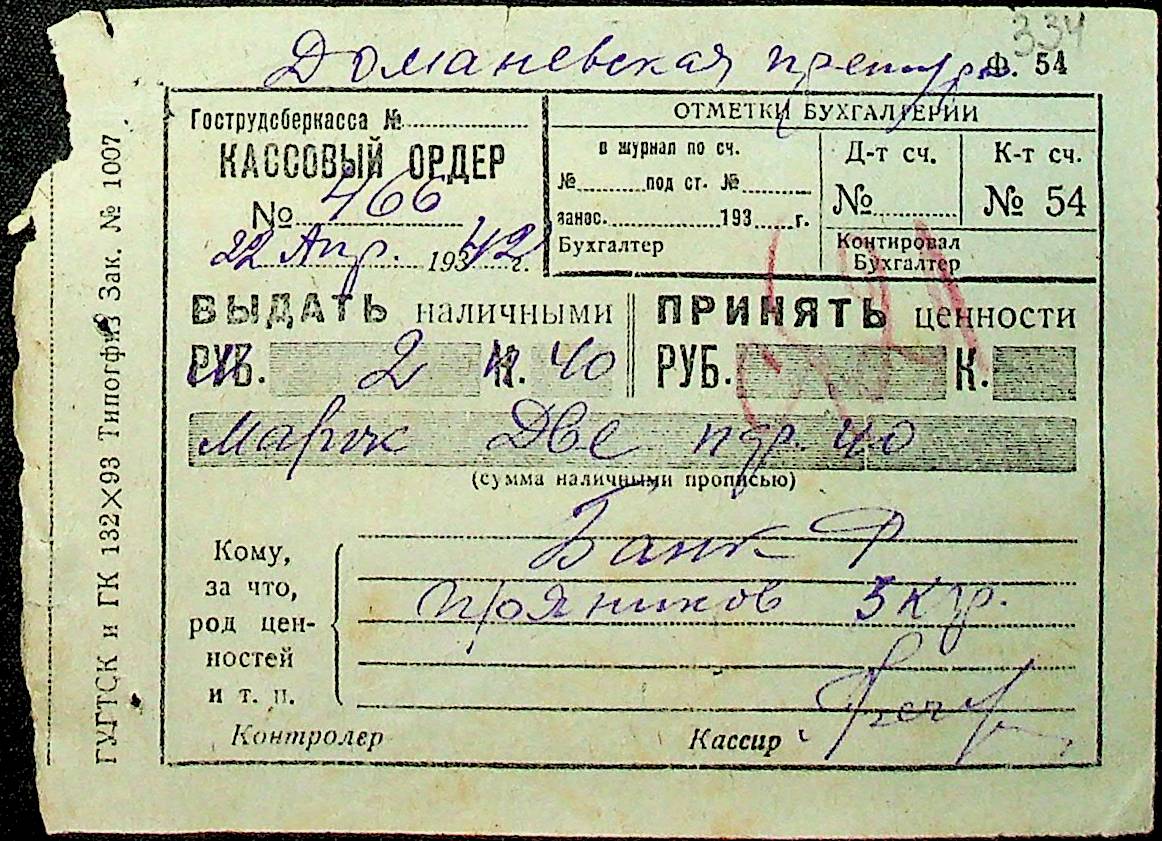 334
Доманевская претура
Ф. 54
Гострудсберкасса №
КАССОВЫЙ ОРДЕР
№ 466
22 Апр. 1942 г.
ОТМЕТКИ БУХГАЛТЕРИИ
в журнал по сч.
№ под ст. №
занос. 193 г.
Бухгалтер
Д-т сч.
№
К-т сч.
№ 54
Контировал
Бухгалтер
ВЫДАТЬ наличными
РУБ. 2 К. 40
ПРИНЯТЬ ценности
РУБ. К.
Марок Две пф. 40
(сумма наличными прописью)
Кому,
за что,
род цен-
ностей
и т. п.
Банк
пряников 5 кгр.
Контролер
Кассир
ГУГТСК и ГК 132×93 Типогфиз Зак. № 1007